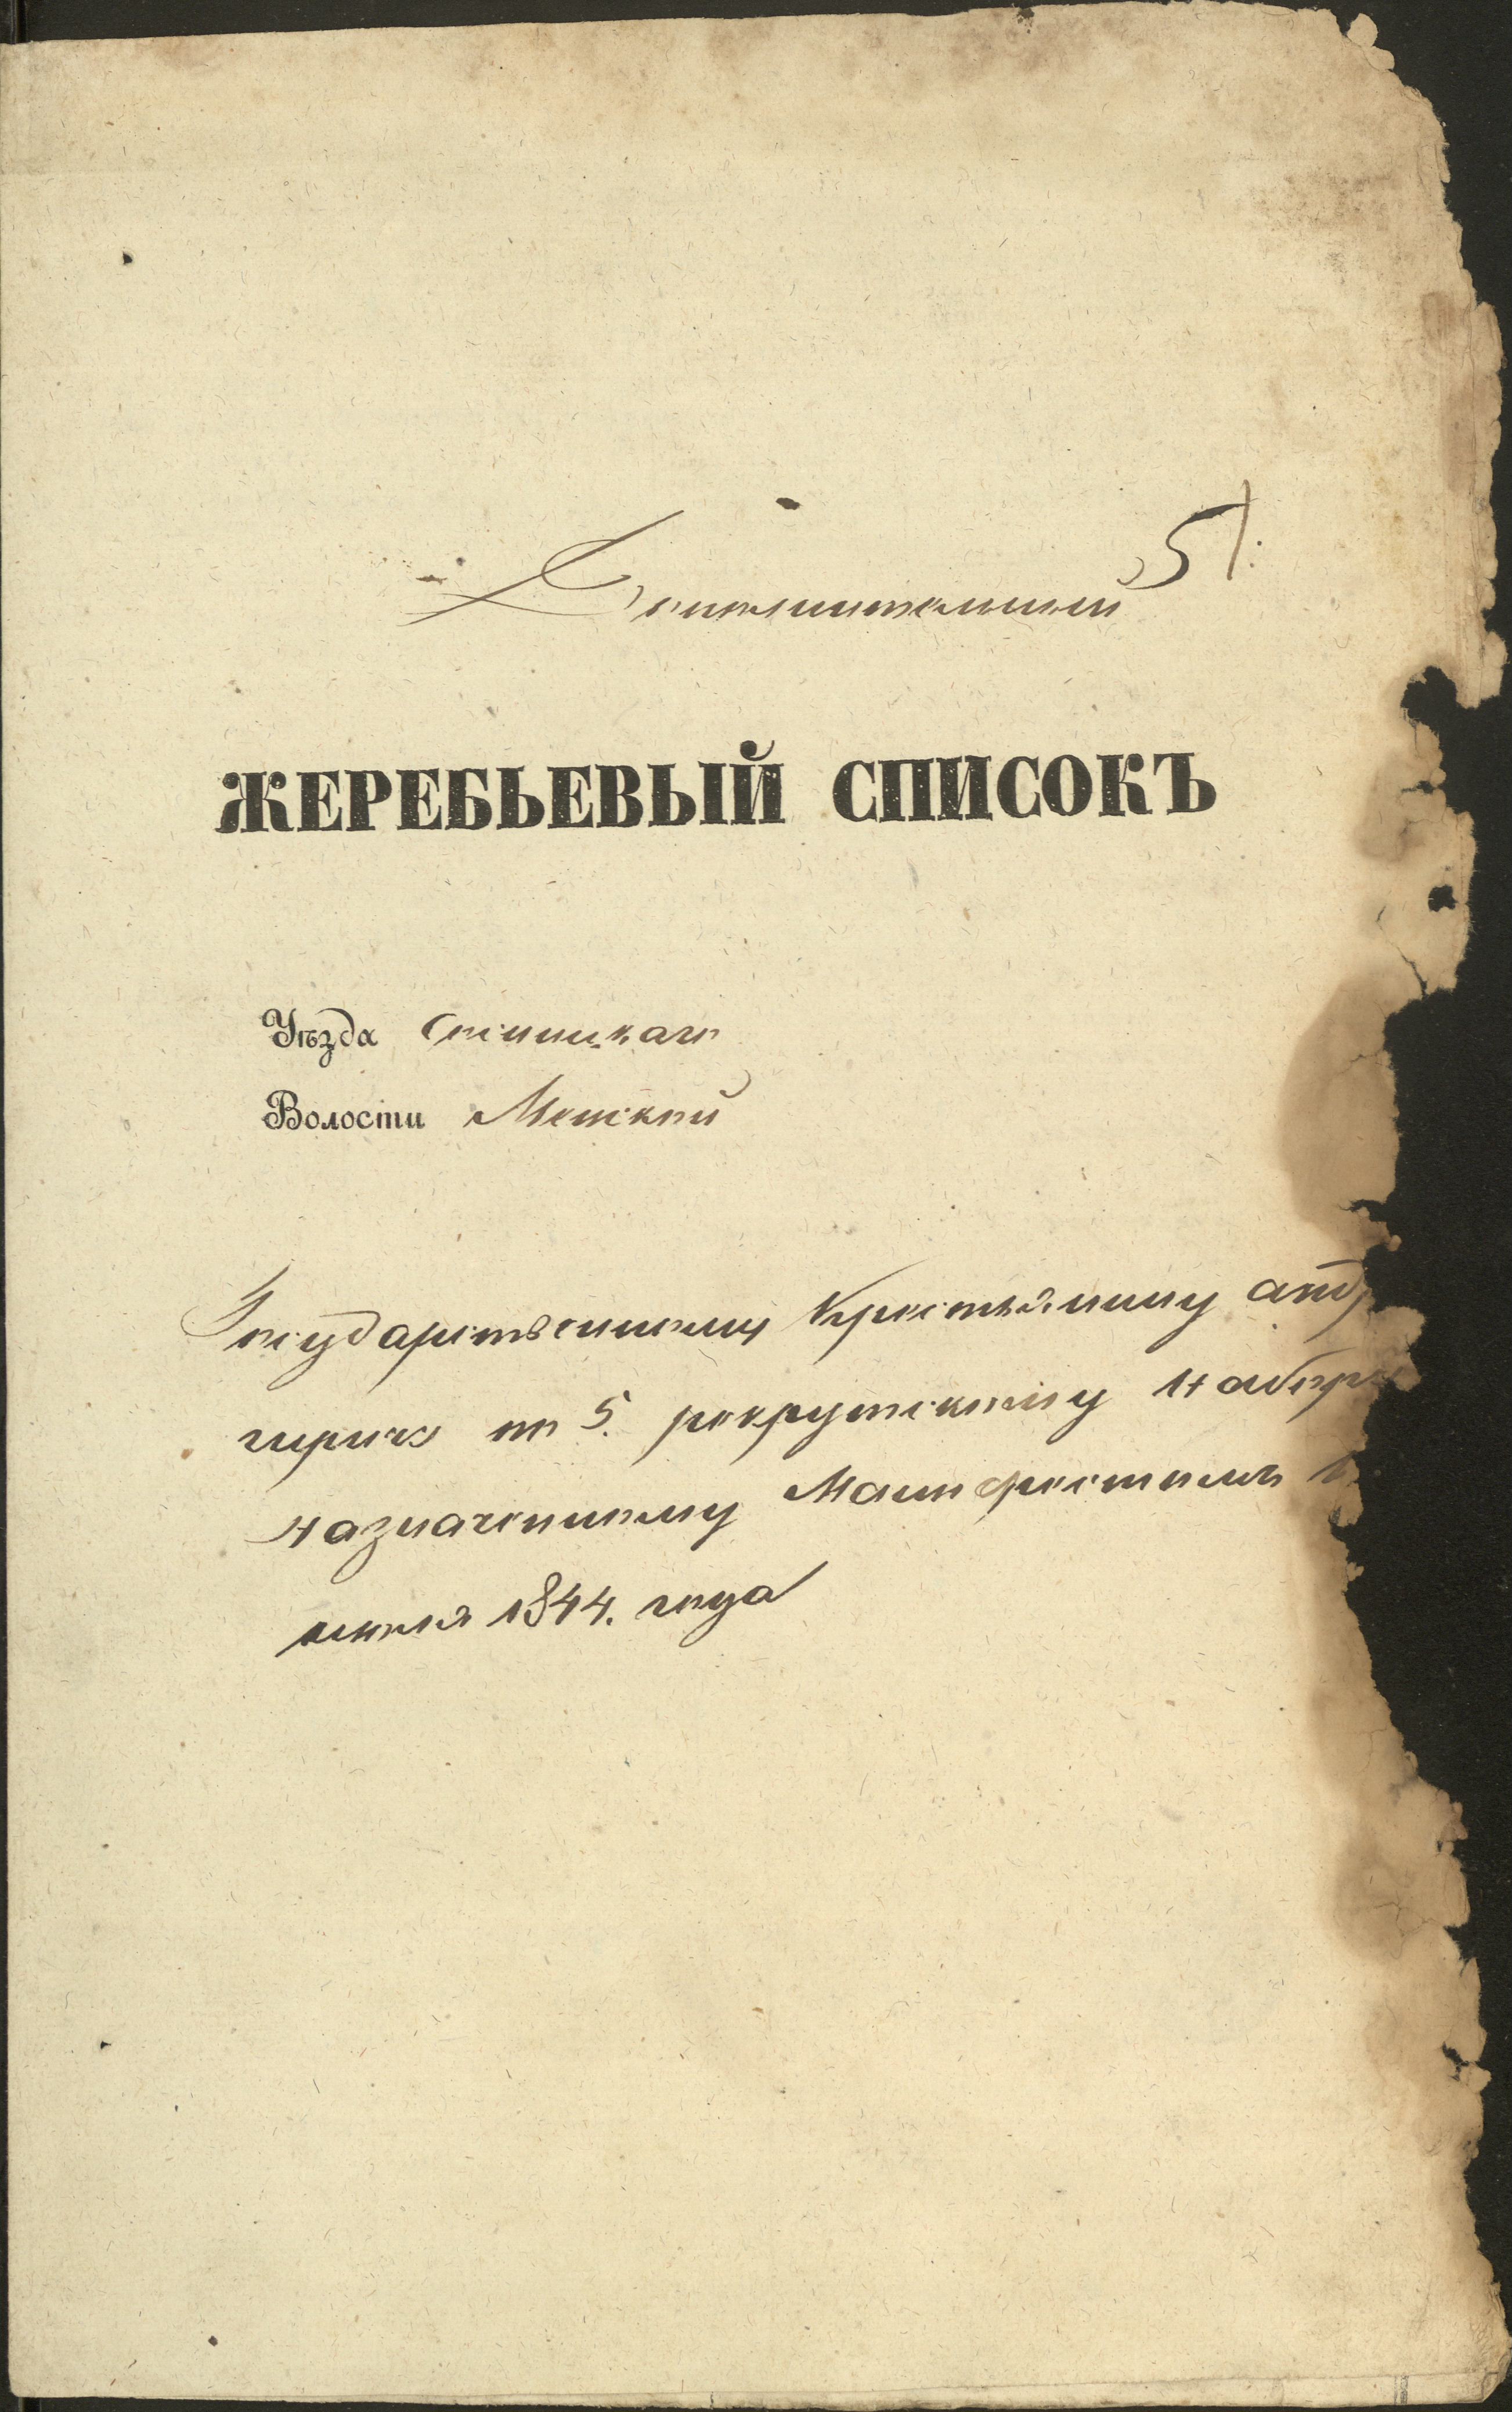 51.
Дополнительный
ЖЕРЕБЬЕВЫЙ СПИСОКЪ
Уѣзда Сосницкаго
Волости Менской
Государственному Крестьянину
по 5. рекрутскому Набору
назначенному Манифестомъ
июля 1844. года